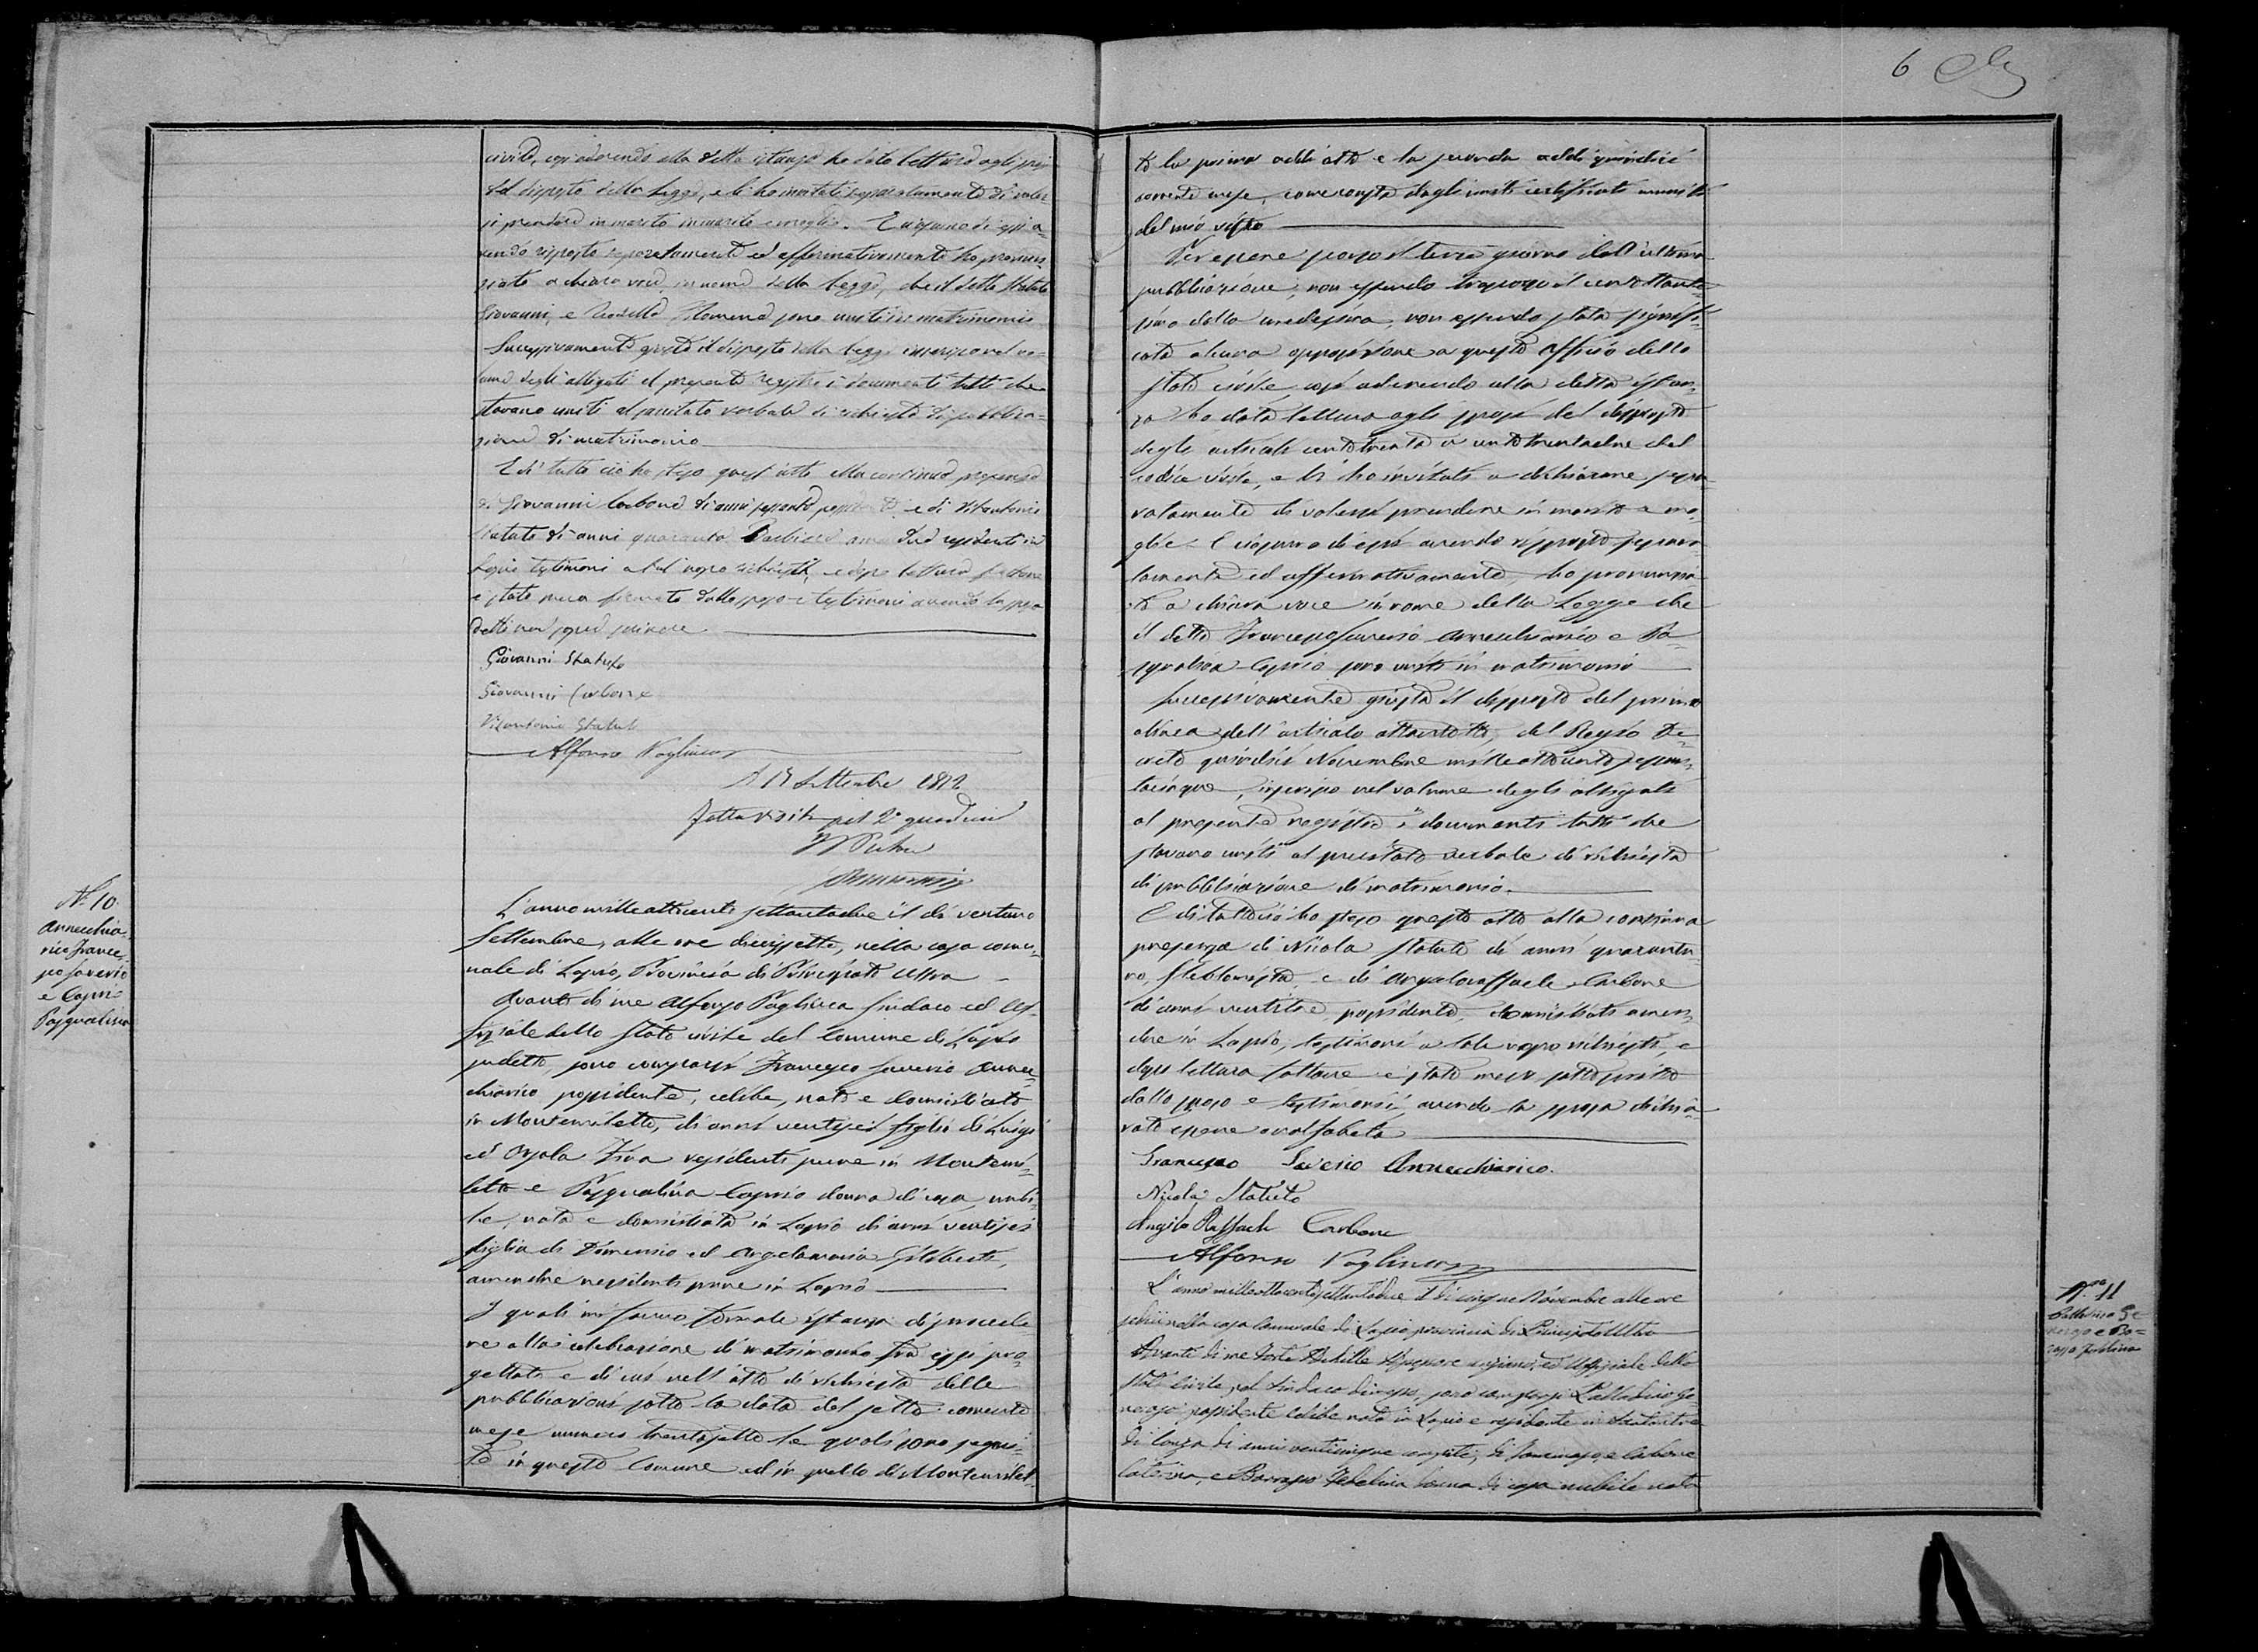 civile, così aderendo alla detta istanza ho dato lettura agli sposi
del disposto della Legge, e li ho invitati separatamente di voler
si prendere in marito in marito e moglie. E ciascuno di essi a-
vendo risposto separatamente ed affermativamente ho pronun-
ziato a chiara voce, in nome della Legge, che il detto Statuto
Giovanni, e Filomena sono uniti in matrimonio
Successivamente giusta il disposto della Legge inserisco nel vo-
lume degli allegati al presente registro i documenti tutti che
stavano uniti al precitato verbale di richiesta di pubblica-
zione di matrimonio
E di tutto ciò ho steso quest'atto alla continua presenza
di Giovanni Carbone di anni sessanta e di Vitantonio
Statuto di anni quaranta Barbiere amendue residenti in
Lapio testimoni a tal uopo richiesti, e dopo lettura fattane
è stato meco firmato dallo sposo e testimoni avendo la sposa
detto non poter scrivere
Giovanni Statuto
Giovanni Carbone
Vitantonio Statuto
Alfonso Pagliuca
A 15 Settembre 1872
Fatta visita pel 2° quadrim
Il Pretore
N.° 10.
Annecchia-
rico France-
sco Saverio
e Caprio
Pasqualina
L'anno milleottocento settantadue il dì ventuno
Settembre, alle ore diecissette, nella casa comu-
nale di Lapio, Provincia di Principato Ultra
Avanti di me Alfonso Pagliuca Sindaco ed Uf-
fiziale dello Stato civile del Comune di Lapio
sudetto, sono comparsi Francesco Saverio Annec-
chiarico possidente, celibe, nato e domiciliato
in Montemiletto, di anni ventisei figlio di Luigi
ed Orsola residenti pure in Montemi-
letto e Pasqualina Caprio donna di casa, nubi-
le, nata e domiciliata in Lapio di anni ventisei
figlia di Domenico ed Angelamaria Giliberti,
amendue residenti pure in Lapio
I quali mi fanno formale istanza di procede-
re alla celebrazione di matrimonio fra essi pro-
gettato e di cui nell'atto di richiesta delle
pubblicazioni sotto la data del sette corrente
mese numero trentasette le quali sono segui-
te in questo Comune ed in quello di Montemilet-
6
to la prima addì otto e la seconda addì quindici
corrente mese, come consta dagli uniti certificati muniti
del mio visto
Ed essere scorso il terzo giorno dall'ultima
pubblicazione, non essendo trascorso il centottante-
simo dalla medesima, non essendo stata signifi-
cata alcuna opposizione a questo Officio dello
Stato civile così aderendo alla detta istan-
za ho dato lettura agli sposi del disposto
degli articoli centotrenta a centotrentadue del
codice civile, e li ho invitati a dichiarare sepa-
ratamente di volersi prendere in marito e mo-
glie. E ciascuno di essi avendo risposto separa-
tamente ed affermativamente, ho pronunzia-
to a chiara voce in nome della Legge che
il detto Francesco Saverio Annecchiarico e Pa-
squalina Caprio sono uniti in matrimonio
Successivamente giusta il disposto del primo
alinea dell'articolo ottantotto, del Regio De-
creto quindici Novembre milleottocento sessan-
tacinque, inserisco nel volume degli allegati
al presente registro i documenti tutti che
stavano uniti al precitato verbale di richiesta
di pubblicazione di matrimonio.
E di tutto ciò ho steso questo atto alla continua
presenza di Nicola Statuto di anni quarantu-
no, e di Angeloraffaele Carbone
di anni ventitre, possidente, domiciliati amen-
due in Lapio, testimoni a tale uopo richiesti, e
dopo lettura fattane è stato meco sottoscritto
dallo sposo e testimonii, avendo la sposa dichia-
rato essere analfabeta
Francesco Saverio Annecchiarico.
Nicola Statuto
Angelo Raffaele Carbone
Alfonso Pagliuca
N.ro 11
Palladino Ge-
neroso e
L'anno milleottocentosettantadue il dì cinque Novembre alle ore
nella casa Comunale di Lapio provincia di Principato Ultra
Avanti di me Achille Assessore anziano, ed Uffiziale dello
Stato Civile, pel Sindaco, sono comparsi Palladino Ge-
neroso possidente celibe nato in Lapio e residente in
di anni venticinque compiti, di e Carbone
Caterina, e donna di casa nubile nata